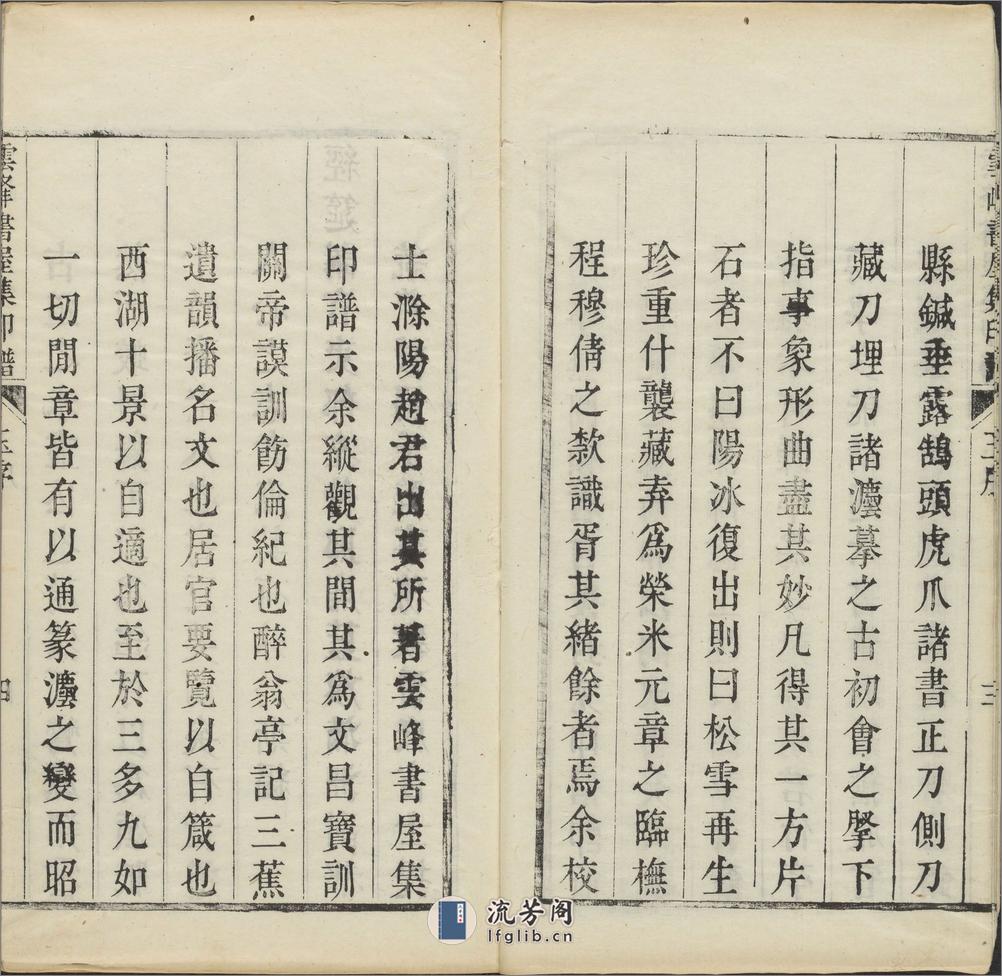 縣鍼垂露鵠頭虎爪諸書正刀側刀
藏刀埋刀諸灋摹之古初會之擘下
指事象形曲盡其妙凡得其一方片
石者不曰陽冰復出則曰松雪再生
珍重什襲藏弆爲榮米元章之臨橅
程穆倩之欵識胥其緒餘者焉余校
士滁陽趙君出其所著雲峰書屋集
印譜示余縱觀其間其爲文昌寶訓
關帝謨訓飭倫紀也醉翁亭記三蕉
遺韻播名文也居官要覽以自箴也
西湖十景以自適也至於三多九如
一切閒章皆有以通篆灋之變而昭
雲峰書屋集印譜
王序
三
雲峰書屋集印譜
王序
四
流芳阁
lfglib.cn